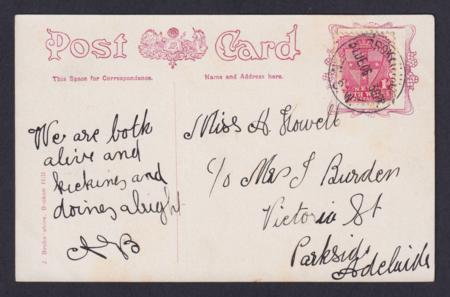 Post Card
This Space for Correspondence.
Name and Address here.
We are both
alive and
kickines and
doines alright
AB
Miss A Howell
c/o Mrs J Burden
Victoria St
Parkside
Adelaide